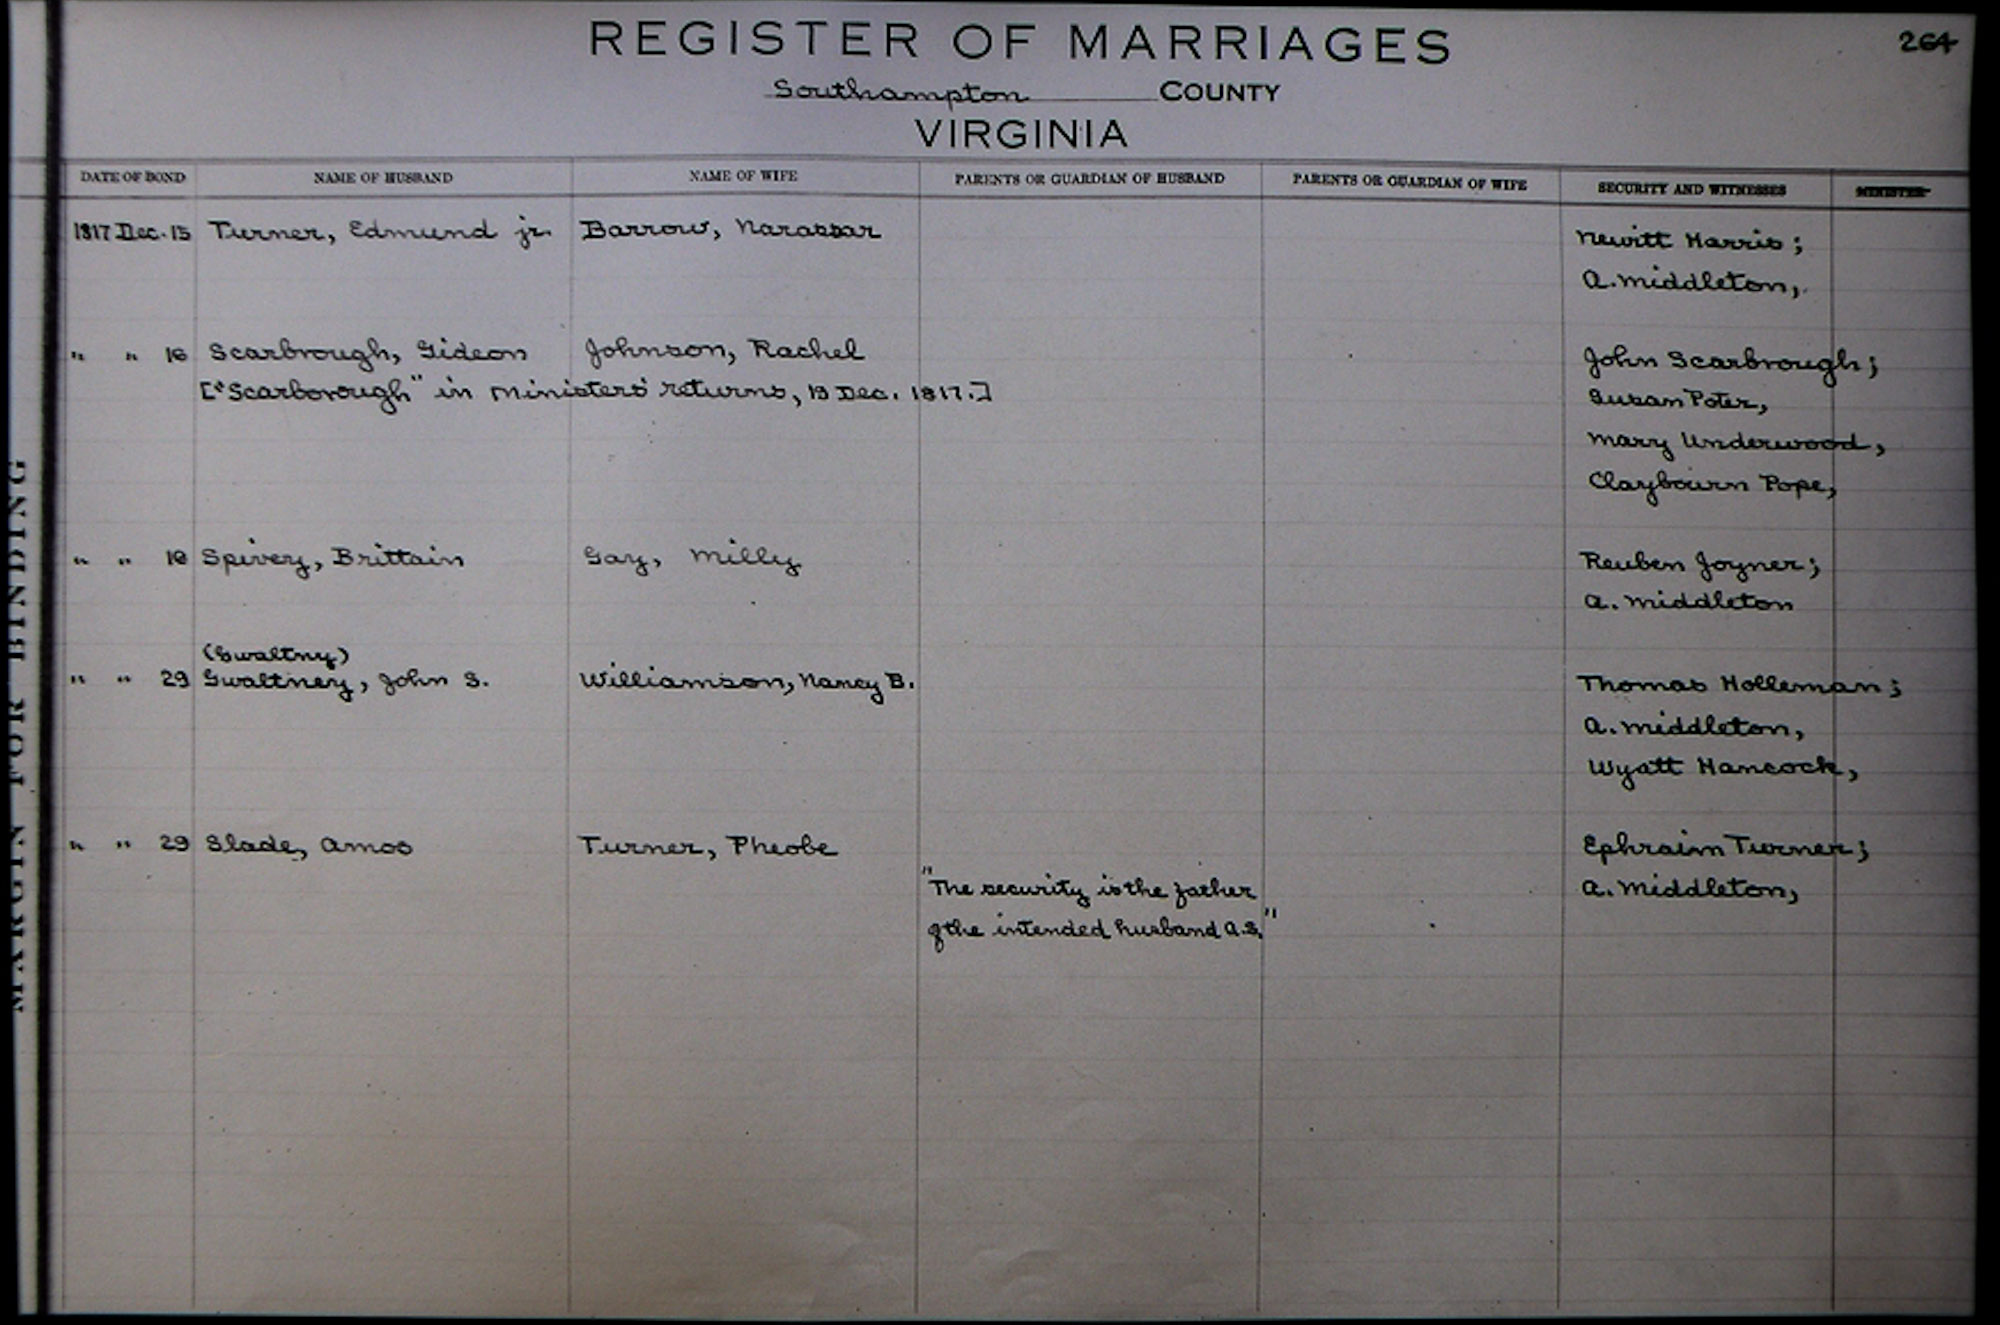 REGISTER OF MARRIAGES
264
Southampton COUNTY
VIRGINIA
DATE OF BOND NAME OF HUSBAND NAME OF WIFE PARENTS OR GUARDIAN OF HUSBAND PARENTS OR GUARDIAN OF WIFE SECURITY AND WITNESSES MINISTER
1817 Dec. 15 Turner, Edmund jr. Barrow, Narassar Newitt Harris;
A. Middleton,
" " 16 Scarbrough, Gideon Johnson, Rachel John Scarbrough;
["Scarborough" in Ministers' returns, 19 Dec. 1817.] Susan Poter,
Mary Underwood,
Claybourn Pope,
" " 18 Spivey, Brittain Gay, Milly Reuben Joyner;
A. Middleton
(Gwaltny)
" " 29 Gwaltney, John S. Williamson, Nancy B. Thomas Holleman;
A. Middleton,
Wyatt Hancock,
" " 29 Slade, Amos Turner, Pheobe Ephraim Turner;
"The security is the father A. Middleton,
of the intended husband A.S."
MARGIN FOR BINDING